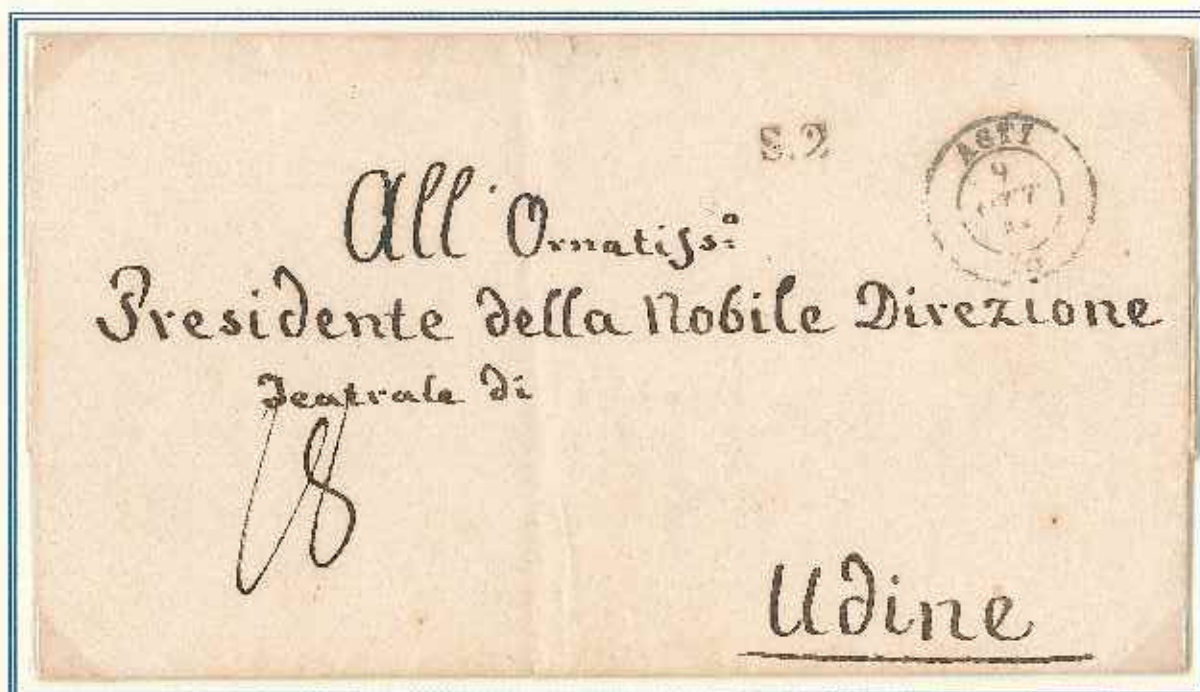 S.2
ASTI
9
All' Ornatiss:º
Presidente della Nobile Direzione
Teatrale di
18
Udine